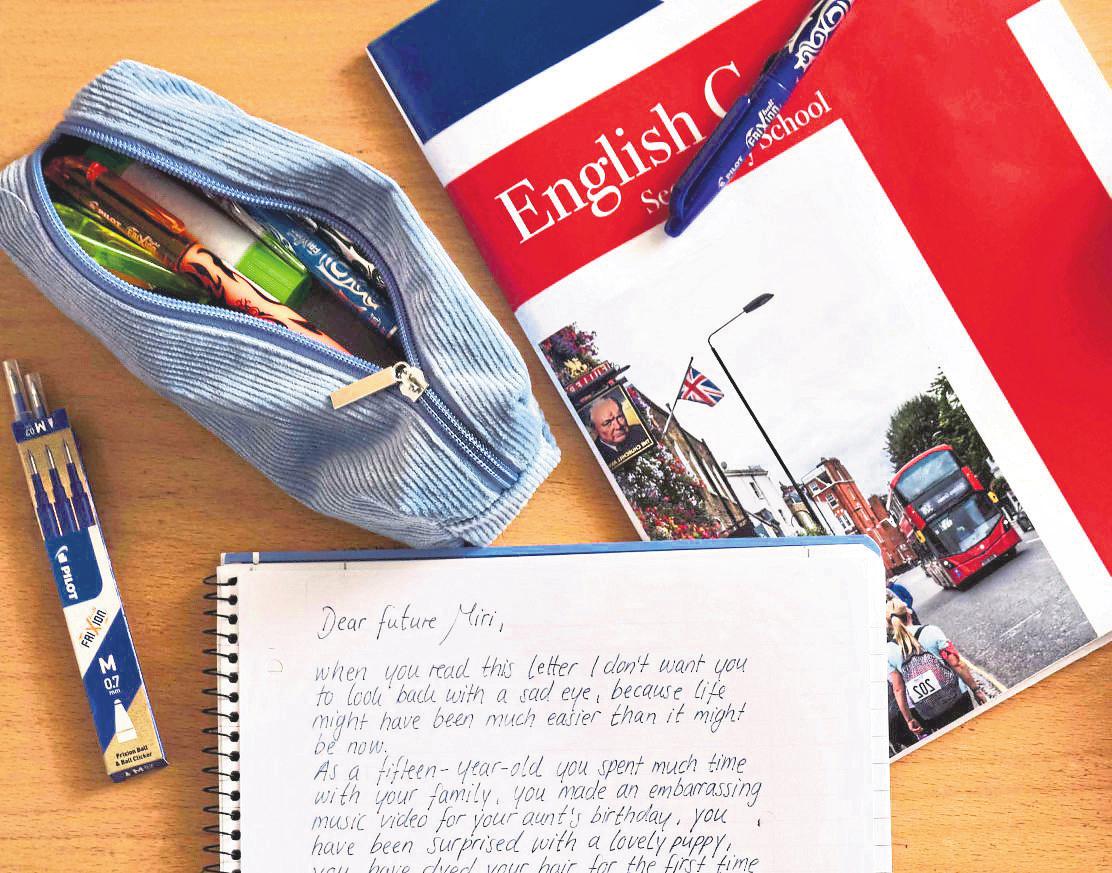 English C
Se y School
PILOT FRIXION ball
PILOT
FRIXION
FRIXION
M 0.7
PILOT
FRIXION
M
0.7
mm
Frixion Ball
& Ball Clicker
M
202
Dear future Miri,
when you read this letter I don't want you
to look back with a sad eye, because life
might have been much easier than it might
be now.
As a fifteen-year-old you spent much time
with your family, you made an embarrassing
music video for your aunt's birthday, you
have been surprised with a lovely puppy,
you have dyed your hair for the first time